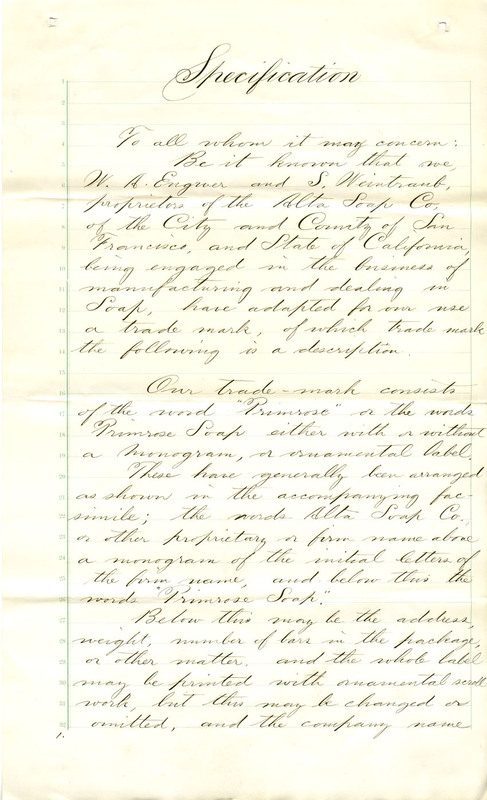 Specification
To all whom it may concern:
Be it known that we,
W. A. Engwer and S. Weintraub,
proprietors of the Alta Soap Co.
of the City and County of San
Francisco, and State of California,
being engaged in the business of
manufacturing and dealing in
Soap, have adapted for our use
a trade mark, of which trade mark
the following is a description.
Our trade-mark consists
of the word "Primrose" or the words
Primrose Soap either with or without
a monogram, or ornamental label.
These have generally been arranged
as shown in the accompanying fac-
simile; the words Alta Soap Co.,
or other proprietary or firm name above
a monogram of the initial letters of
the firm name, and below this the
words "Primrose Soap".
Below this may be the address,
weight, number of bars in the package,
or other matter, and the whole label
may be printed with ornamental scroll
work, but this may be changed or
omitted, and the company name
1.